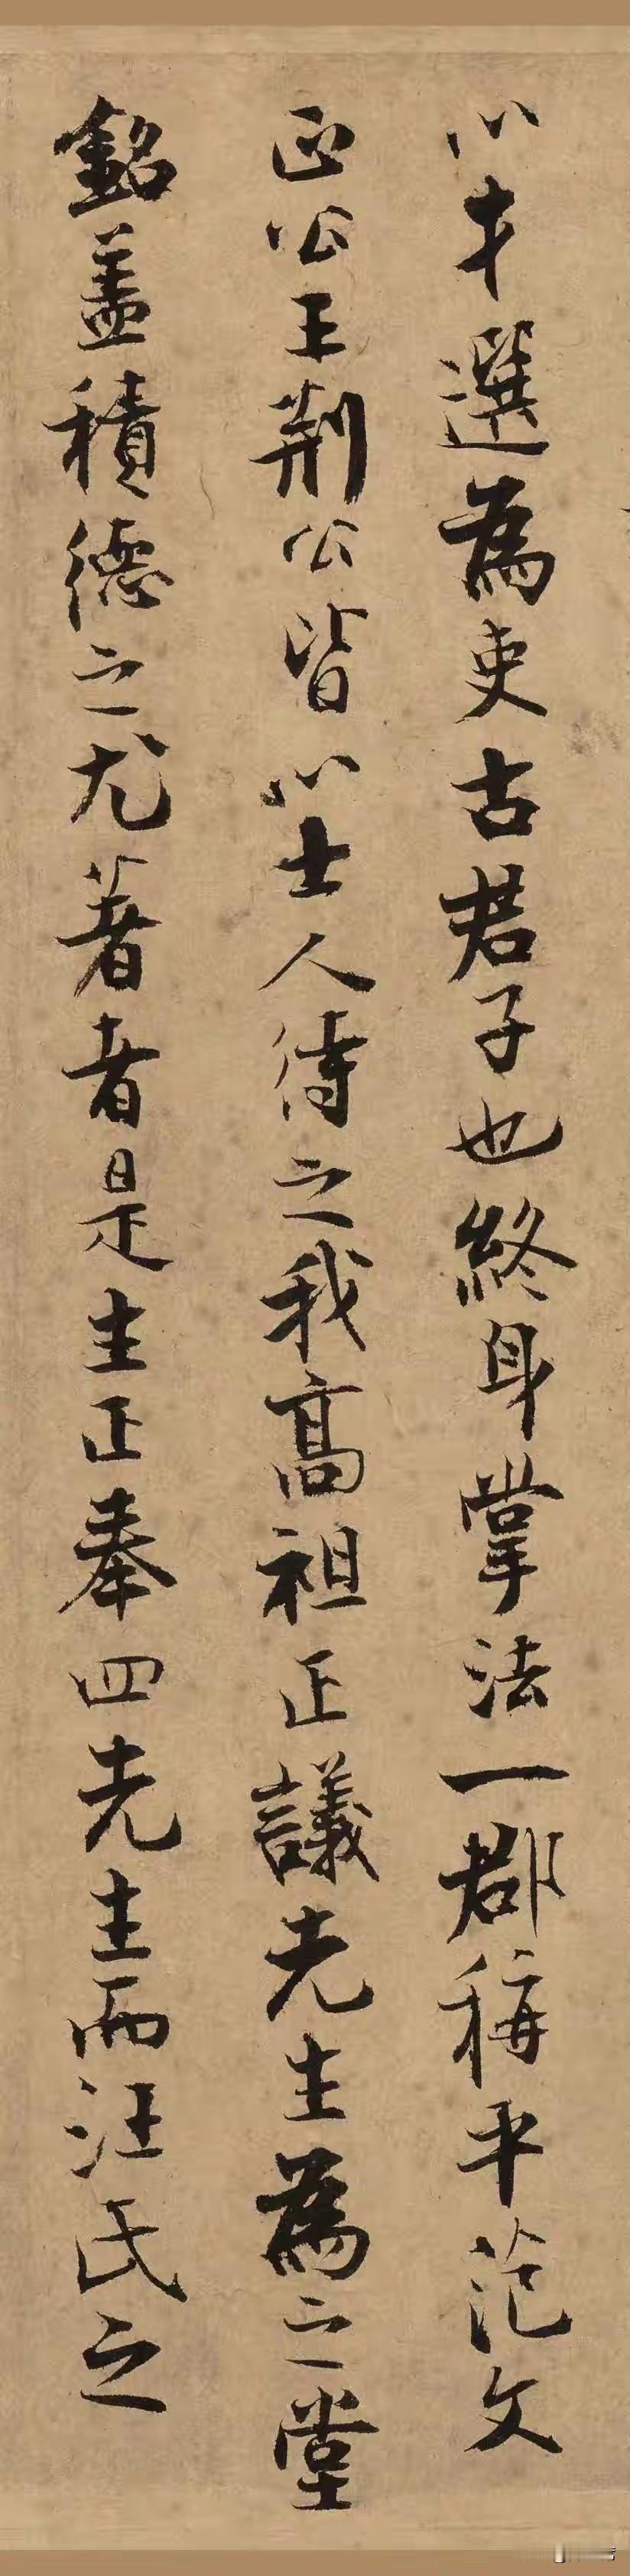 以才選為吏古君子也終身掌法一郡稱平范文
正公王荊公皆以士人待之我高祖正議先生為之堂
銘蓋積德之尤著者是生正奉四先生而汪氏之